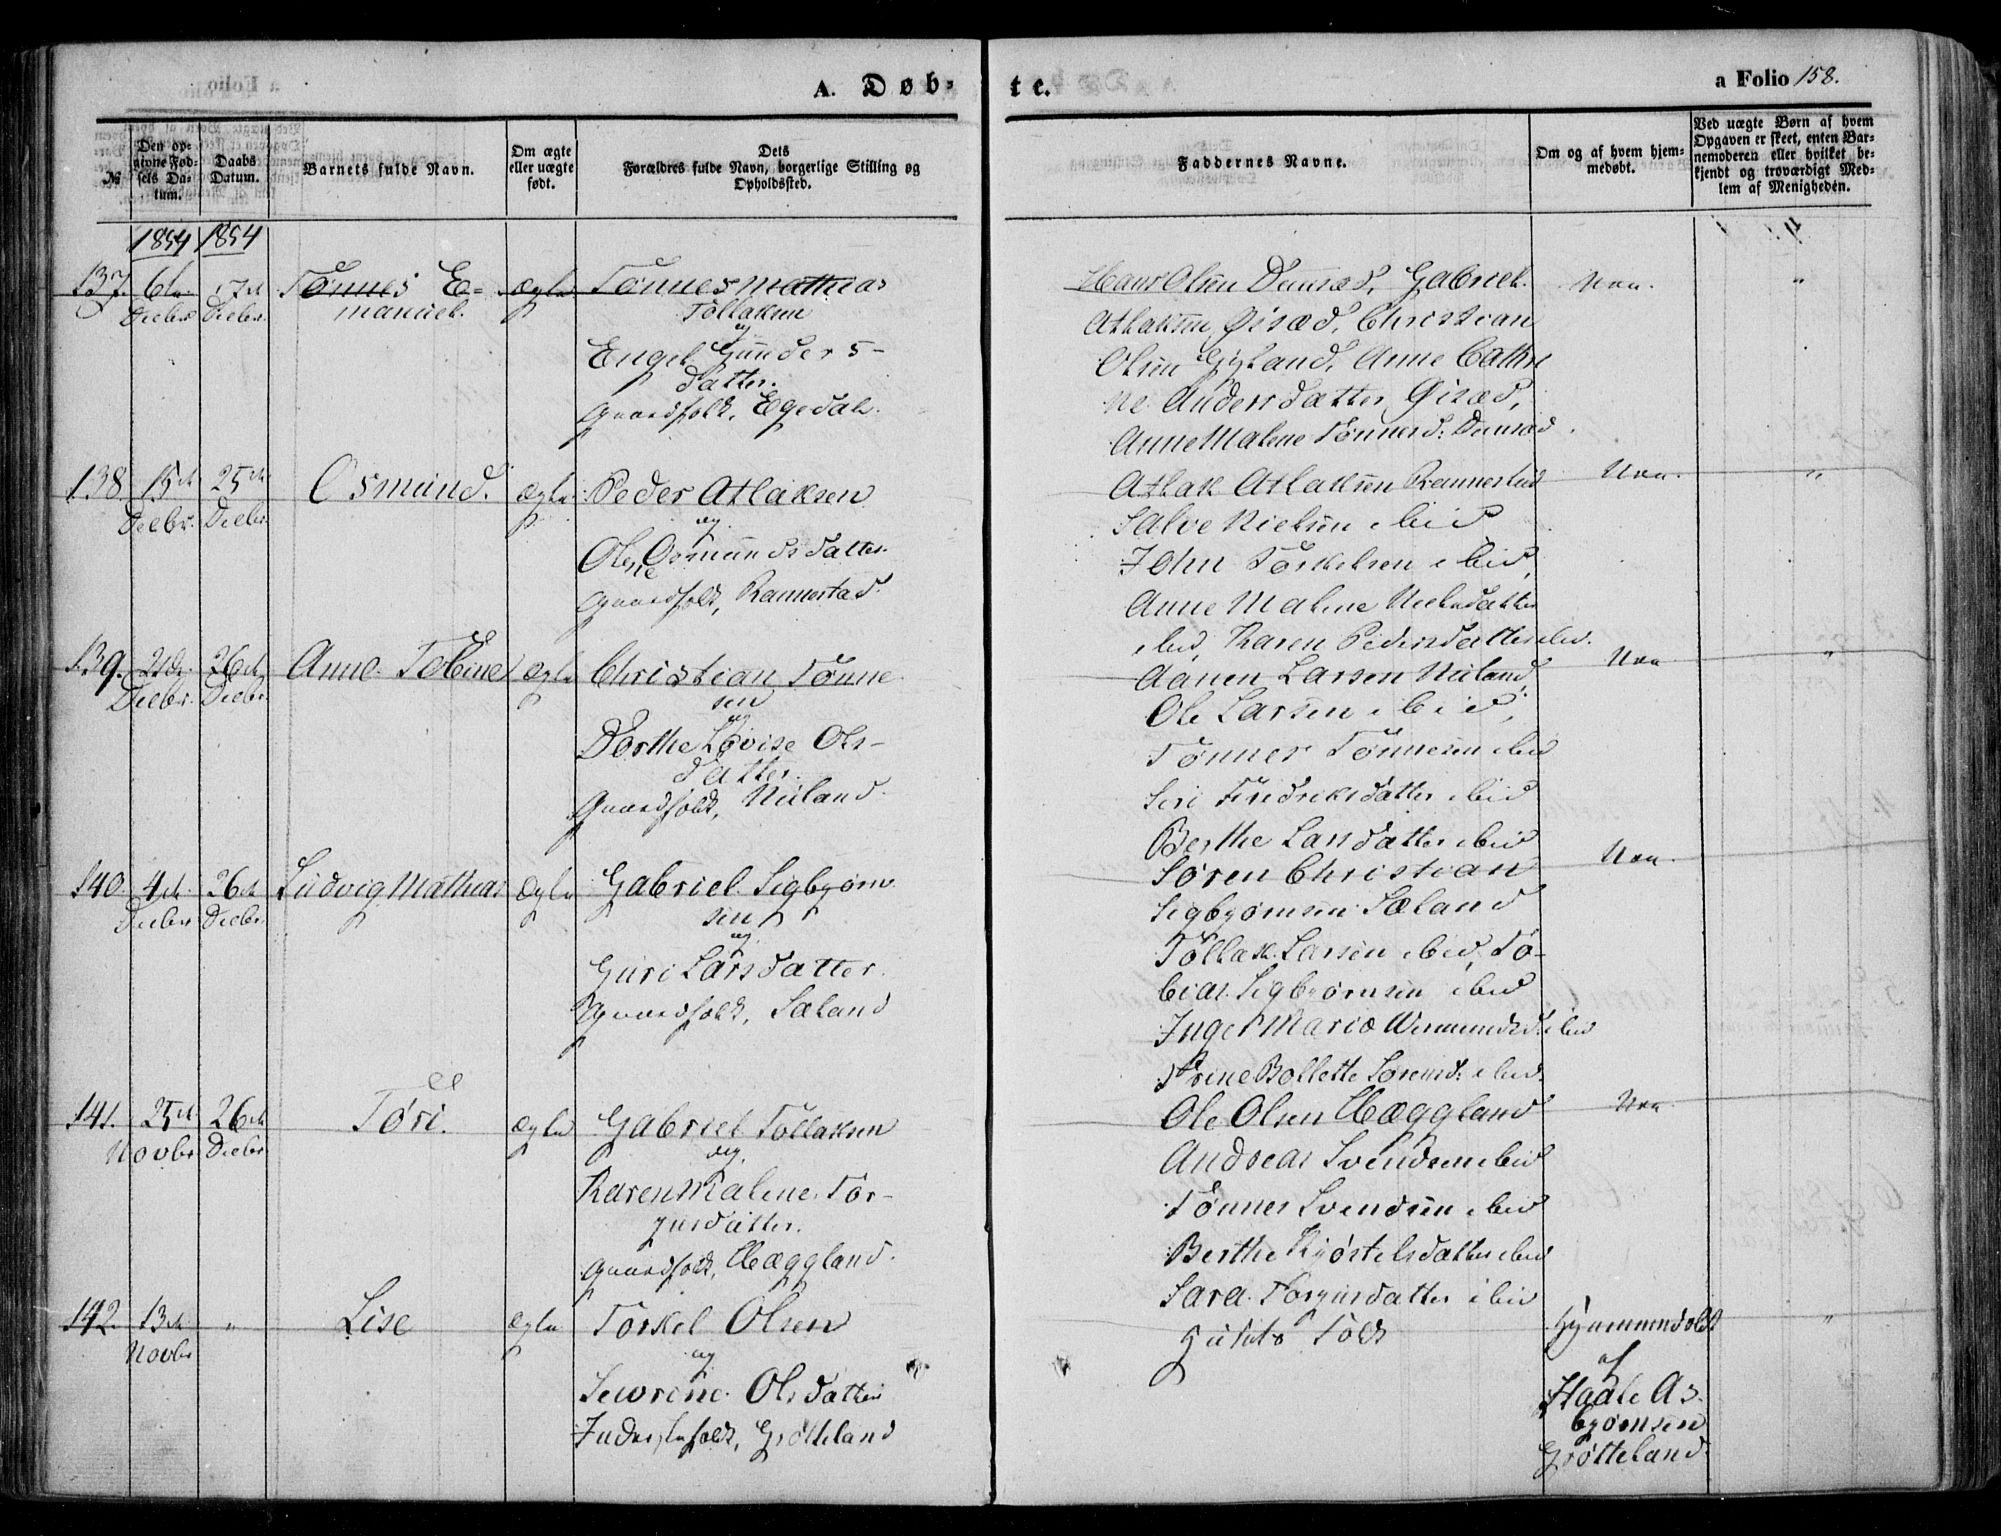 A. Døb-
te.
a Folio 158.
№
Den op-
givne Fød-
sels Da-
tum.
Daabs
Datum.
Barnets fulde Navn.
Om ægte
eller uægte
født.
Dets
Forældres fulde Navn, borgerlige Stilling og
Opholdssted.
Faddernes Navne.
Om og af hvem hjem-
medøbt.
Ved uægte Børn af hvem
Opgaven er skeet, enten Bar-
nemoderen eller hvilket be-
kjendt og troværdigt Med-
lem af Menigheden.
1854 1854
137. 6te 17d Tønnes E- ægte Tønnes Mathias
Decbr. Decbr. manuel. Tollaksen
og
Engel Gunders-
datter.
Gaardfolk, Egedal.
Hans Olsen Gabriel
Atlaksen Øisæd, Christian
Olsen Anne Cathri
ne Andersdatter Øisæd,
Anne Malene Tønnesd:
138 15d 25d Osmund. ægte Peder Atlaksen
Decbr. Decbr. og
Olene Osmundsdatter
Gaardfolk, Rannestad.
Atlak Atlaksen Rannestad
Salve Nielsen ibid
John Torkelsen ibid,
Anne Malene Nielsdatter
ibid, Karen Pedersdatter ibid.
139. 26d Anne Tobine ægte Christian Tønne
Decbr. Decbr. sen
og
Dorthe Lovise Ols-
datter.
Gaardfolk, Niland.
Aanen Larsen Niland,
Ole Larsen ibid,
Tønnes Tønnesen ibid
Siri Fredriksdatter ibid
Berthe Larsdatter ibid
140. 4d 26d Ludvig Mathias ægte Gabriel Sigbjørn
Decbr Decbr. sen
og
Guri Larsdatter.
Gaardfolk, Sæland
Søren Christian
Sigbjørnsen Sæland
Tollak Larsen ibid, To-
bias Sigbjørnsen ibid
Inger Marie ibid
Trine Bollette Sørensd: ibid.
141. 25d 26d Tøri. ægte Gabriel Tollaksen
Novbr Decbr og
Karen Malene Tor-
jusdatter.
Gaardfolk, Hæggland.
Ole Olsen Hæggland
Andreas Svendsen ibid
Tønnes Svendsen ibid
Berthe Kjøstelsdatter ibid
Sara Torjusdatter ibid
142. 13d " Lise ægte Torkel Olsen
Novbr og
Sewrine Olsdatter
Inderstefolk, Grøtteland
Hjemmedøbt
af
As-
bjørnsen
Grøtteland.